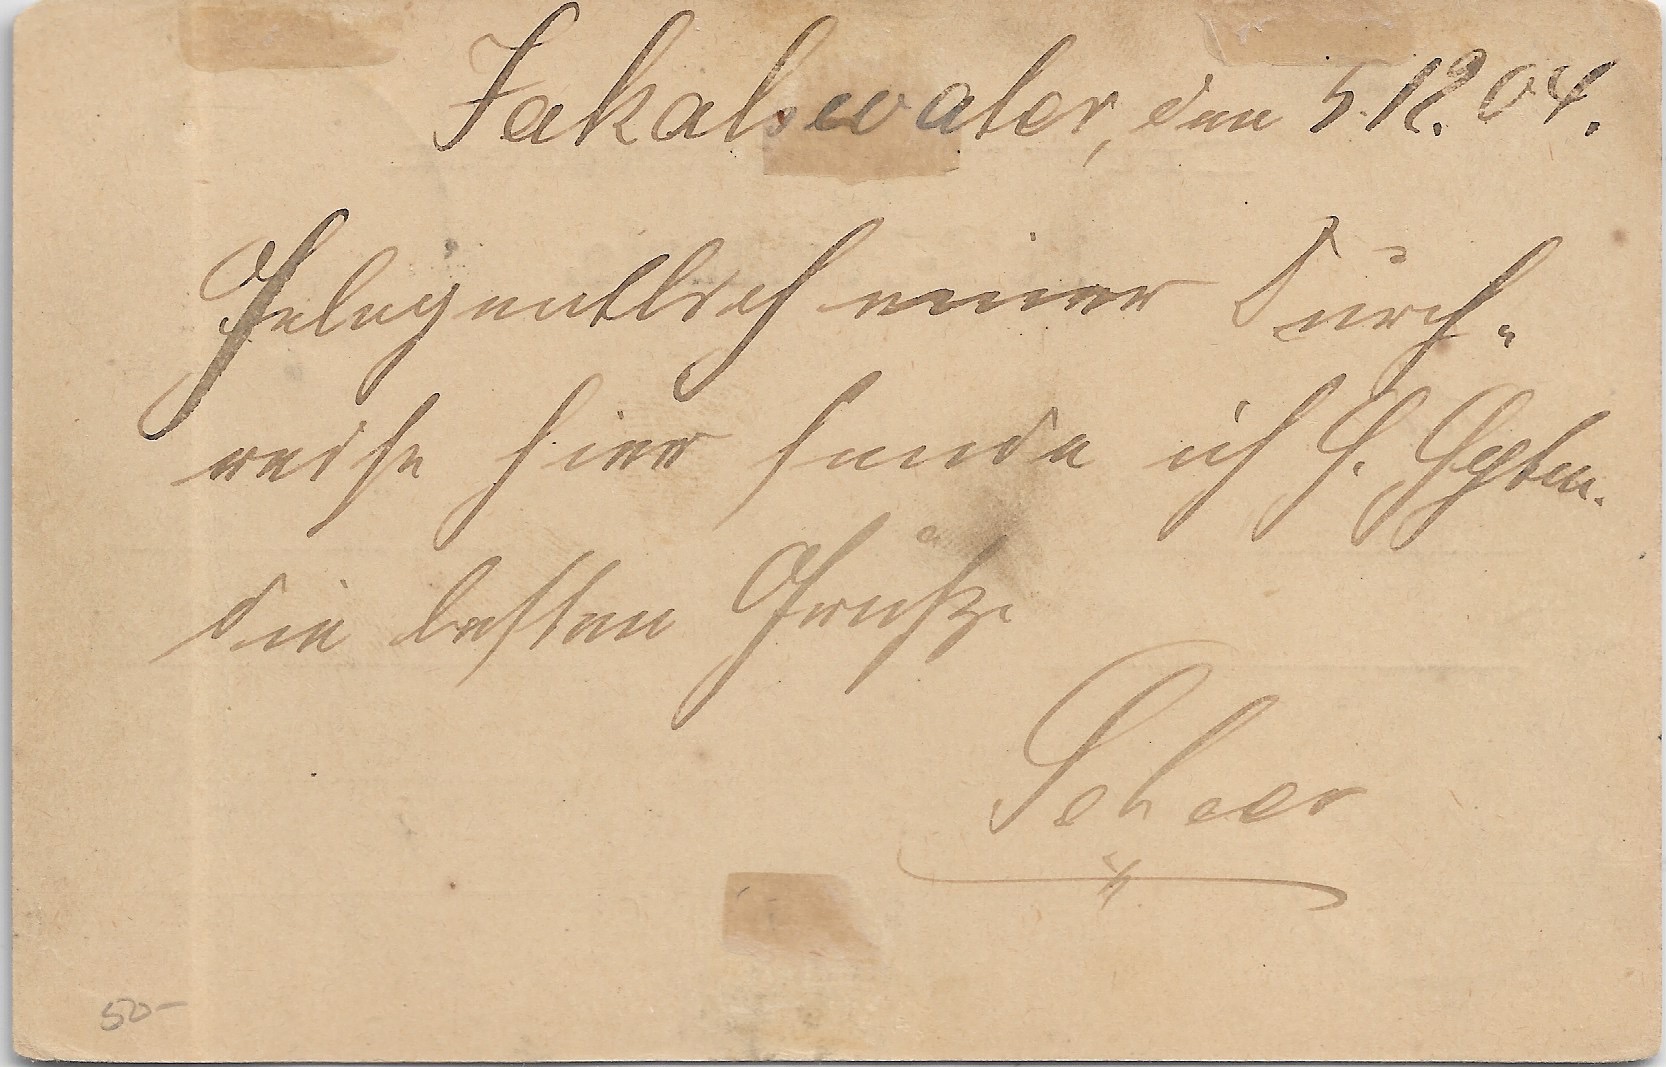 Jakalswater, den 5.12.04.
Gelegentlich einer Durch-
reise hier sende ich
die besten Grüße
Scheer
50-